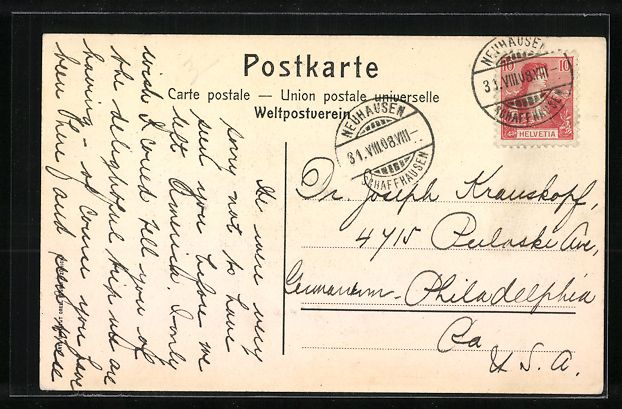 Postkarte
Carte postale — Union postale universelle
Weltpostverein
NEUHAUSEN
31.VIII.08.VIII—
SCHAFFHAUSEN
NEUHAUSEN
31.VIII.08.VIII—
SCHAFFHAUSEN
10 10
HELVETIA
We were very
sorry not to have
seen you before we
left America. I only
wish I could tell you of
the delightful trip we are
having - of course you have
been there and
Dr. Joseph Krauskopf,
4715 Pulaski Ave,
Germantown - Philadelphia
Pa
U.S.A.